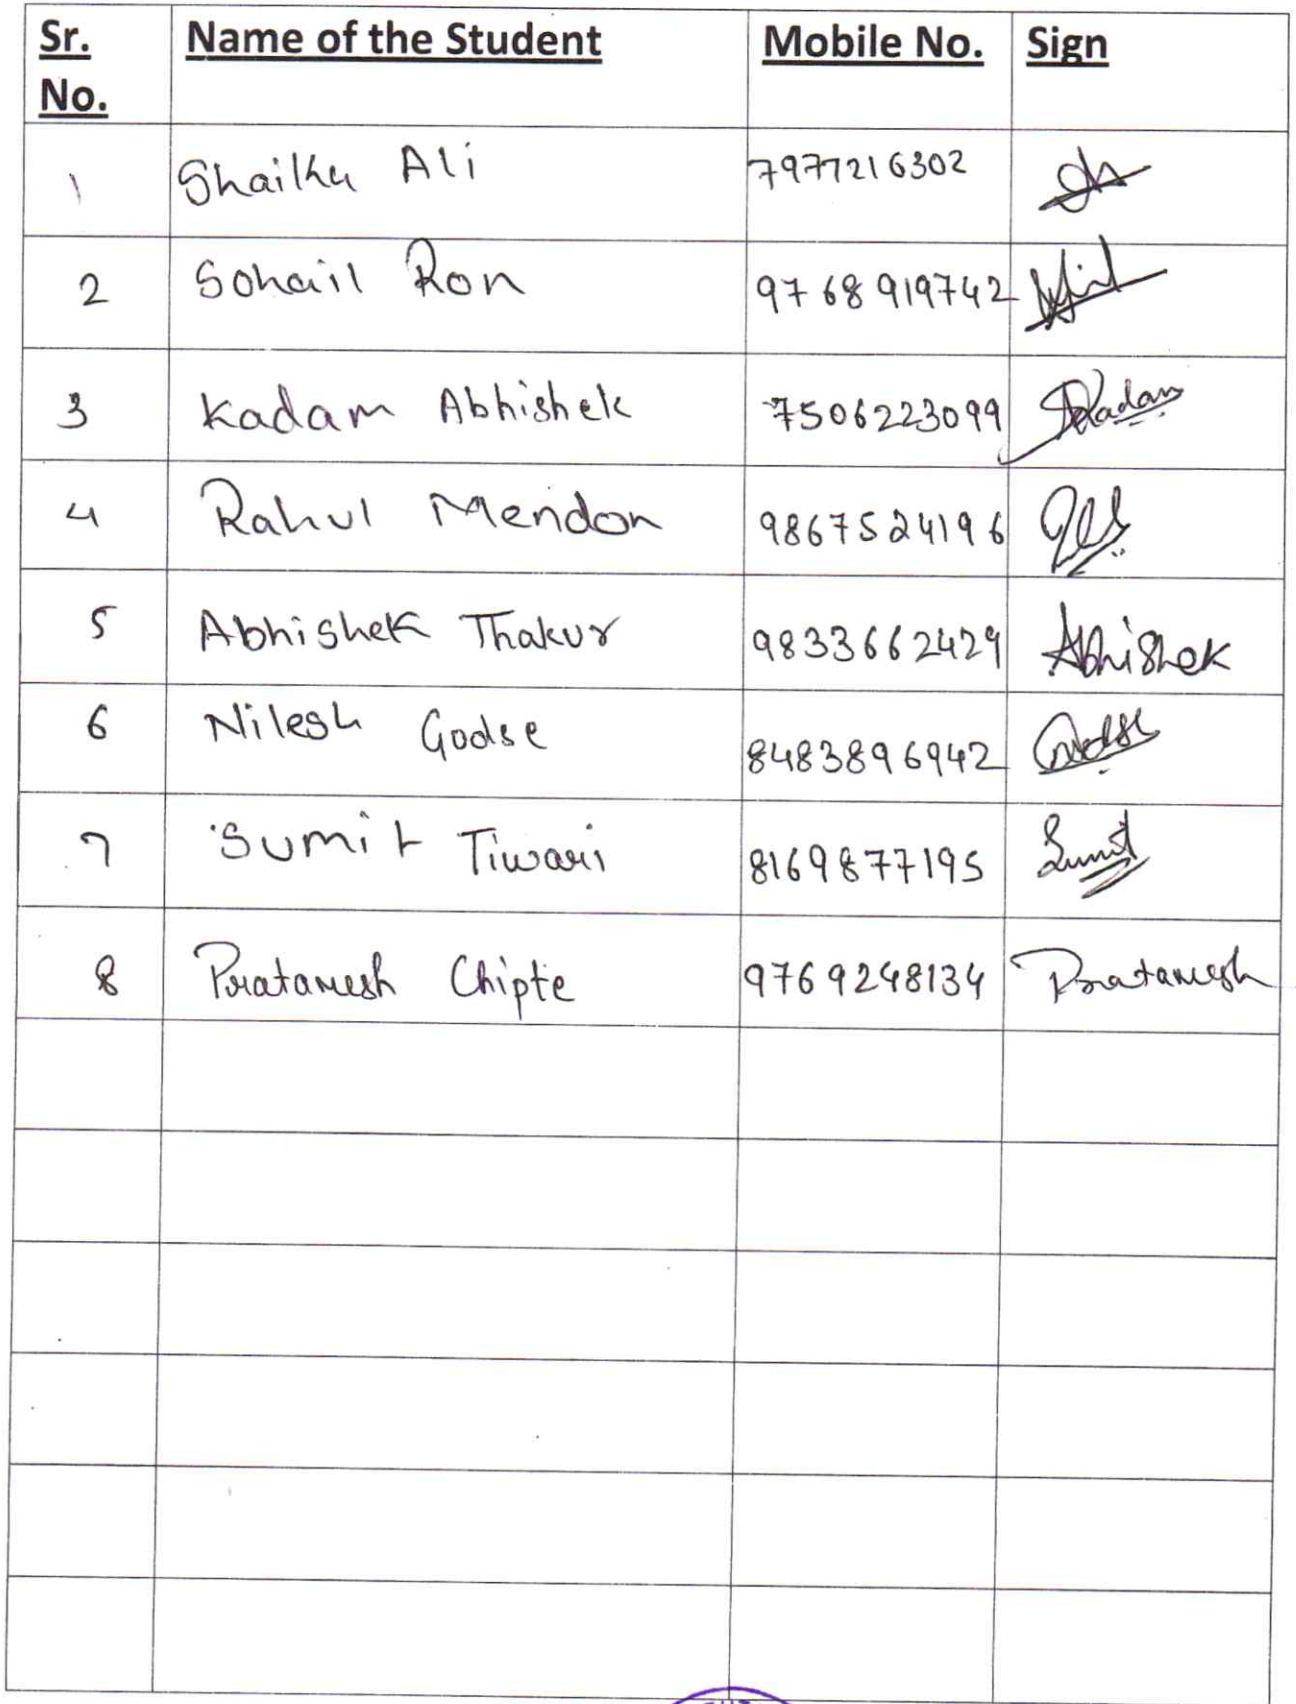 Sr. No. Name of the Student Mobile No. Sign
1 Shaikh Ali 7977216302
2 Sohail Ron 9768919742
3 Kadam Abhishek 7506223099 Kadam
4 Rahul Mendon 9867524196
5 Abhishek Thakur 9833662429 Abhishek
6 Nilesh Godse 8483896942 Godse
7 Sumit Tiwari 8169877195 Sumit
8 Pratamesh Chipte 9769248134 Pratamesh